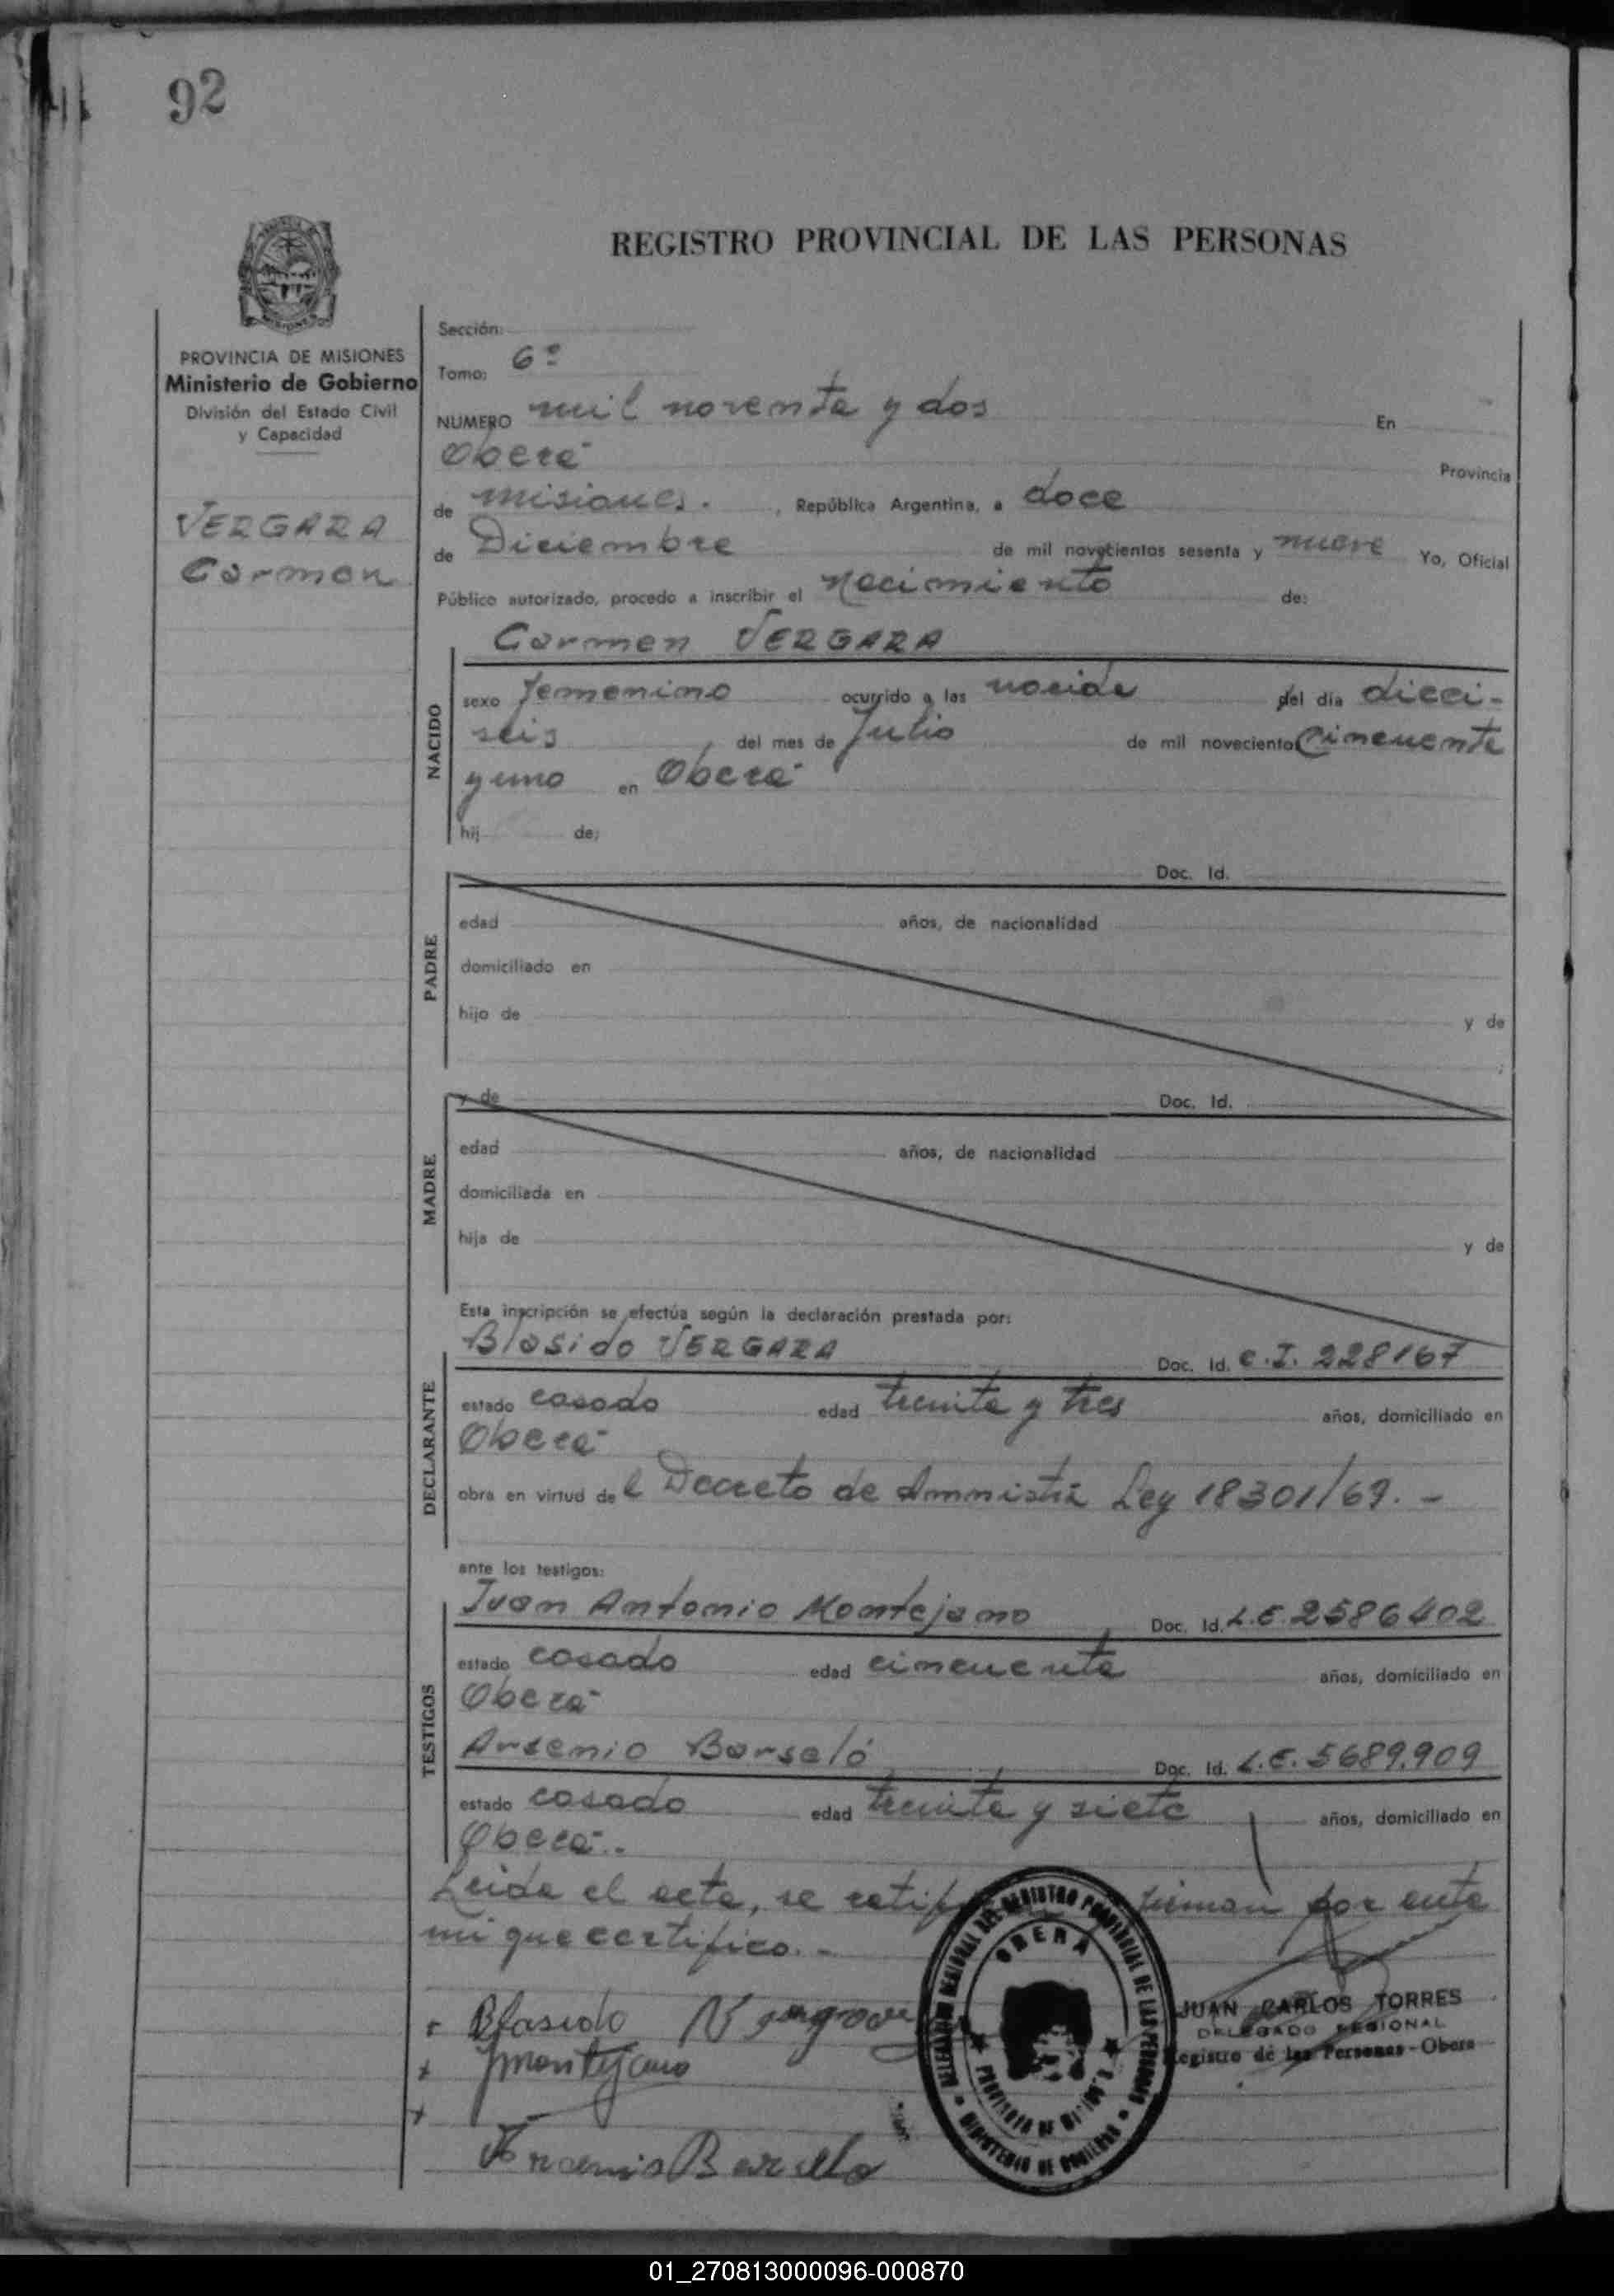 92
REGISTRO PROVINCIAL DE LAS PERSONAS
PROVINCIA DE MISIONES
Ministerio de Gobierno
División del Estado Civil
y Capacidad
VERGARA
Carmen
Sección:
Tomo: 6º
NUMERO mil noventa y dos En
Oberá Provincia
de misiones. , República Argentina, a doce
de Diciembre de mil novecientos sesenta y nueve Yo, Oficial
Público autorizado, procedo a inscribir el Nacimiento de:
Carmen VERGARA
NACIDO
sexo femenino ocurrido a las nacida del día dieci-
seis del mes de Julio de mil noveciento cincuenta
y uno en Oberá
hij de:
PADRE
Doc. Id.
edad años, de nacionalidad
domiciliado en
hijo de y de
MADRE
y de Doc. Id.
edad años, de nacionalidad
domiciliada en
hija de y de
Esta inscripción se efectúa según la declaración prestada por:
DECLARANTE
Blasido VERGARA Doc. Id. C.I. 228167
estado casado edad treinta y tres años, domiciliado en
Oberá
obra en virtud del Decreto de Amnistía Ley 18301/69. -
ante los testigos:
TESTIGOS
Juan Antonio Montejano Doc. Id. L.E. 2586402
estado casado edad cincuenta años, domiciliado en
Oberá
Arsenio Barseló Doc. Id. L.E. 5689.909
estado casado edad treinta y siete años, domiciliado en
Oberá.
Leida el acta, se ratif firman por ante
mi que certifico. -
Blasido
JMontejano
DELEGACION REGIONAL DEL REGISTRO PROVINCIAL DE LAS PERSONAS
OBERA
PROVINCIA DE MISIONES
MINISTERIO DE GOBIERNO
JUAN CARLOS TORRES
DELEGADO REGIONAL
Registro de las Personas - Obera
01_270813000096-000870